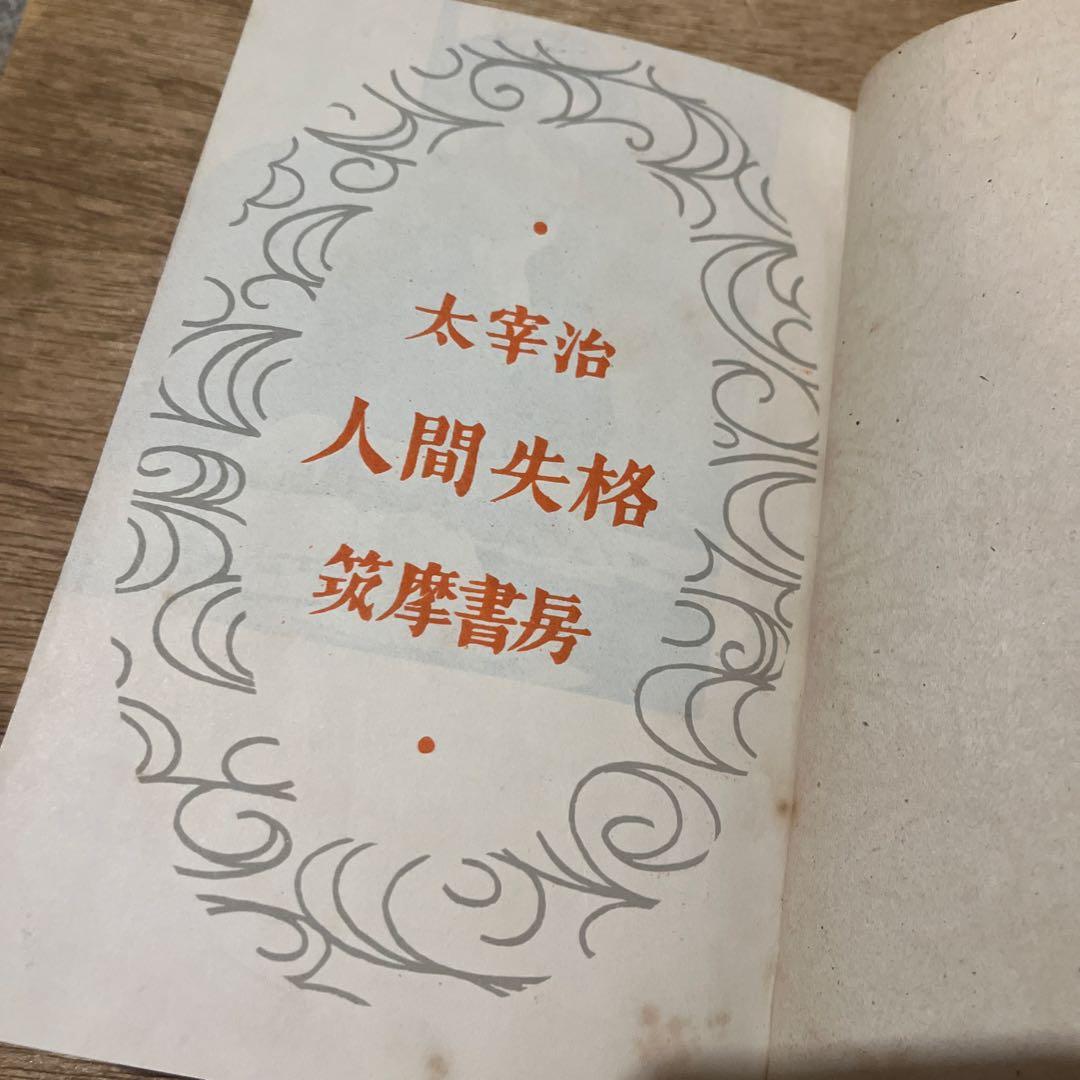 太宰治
人間失格
筑摩書房